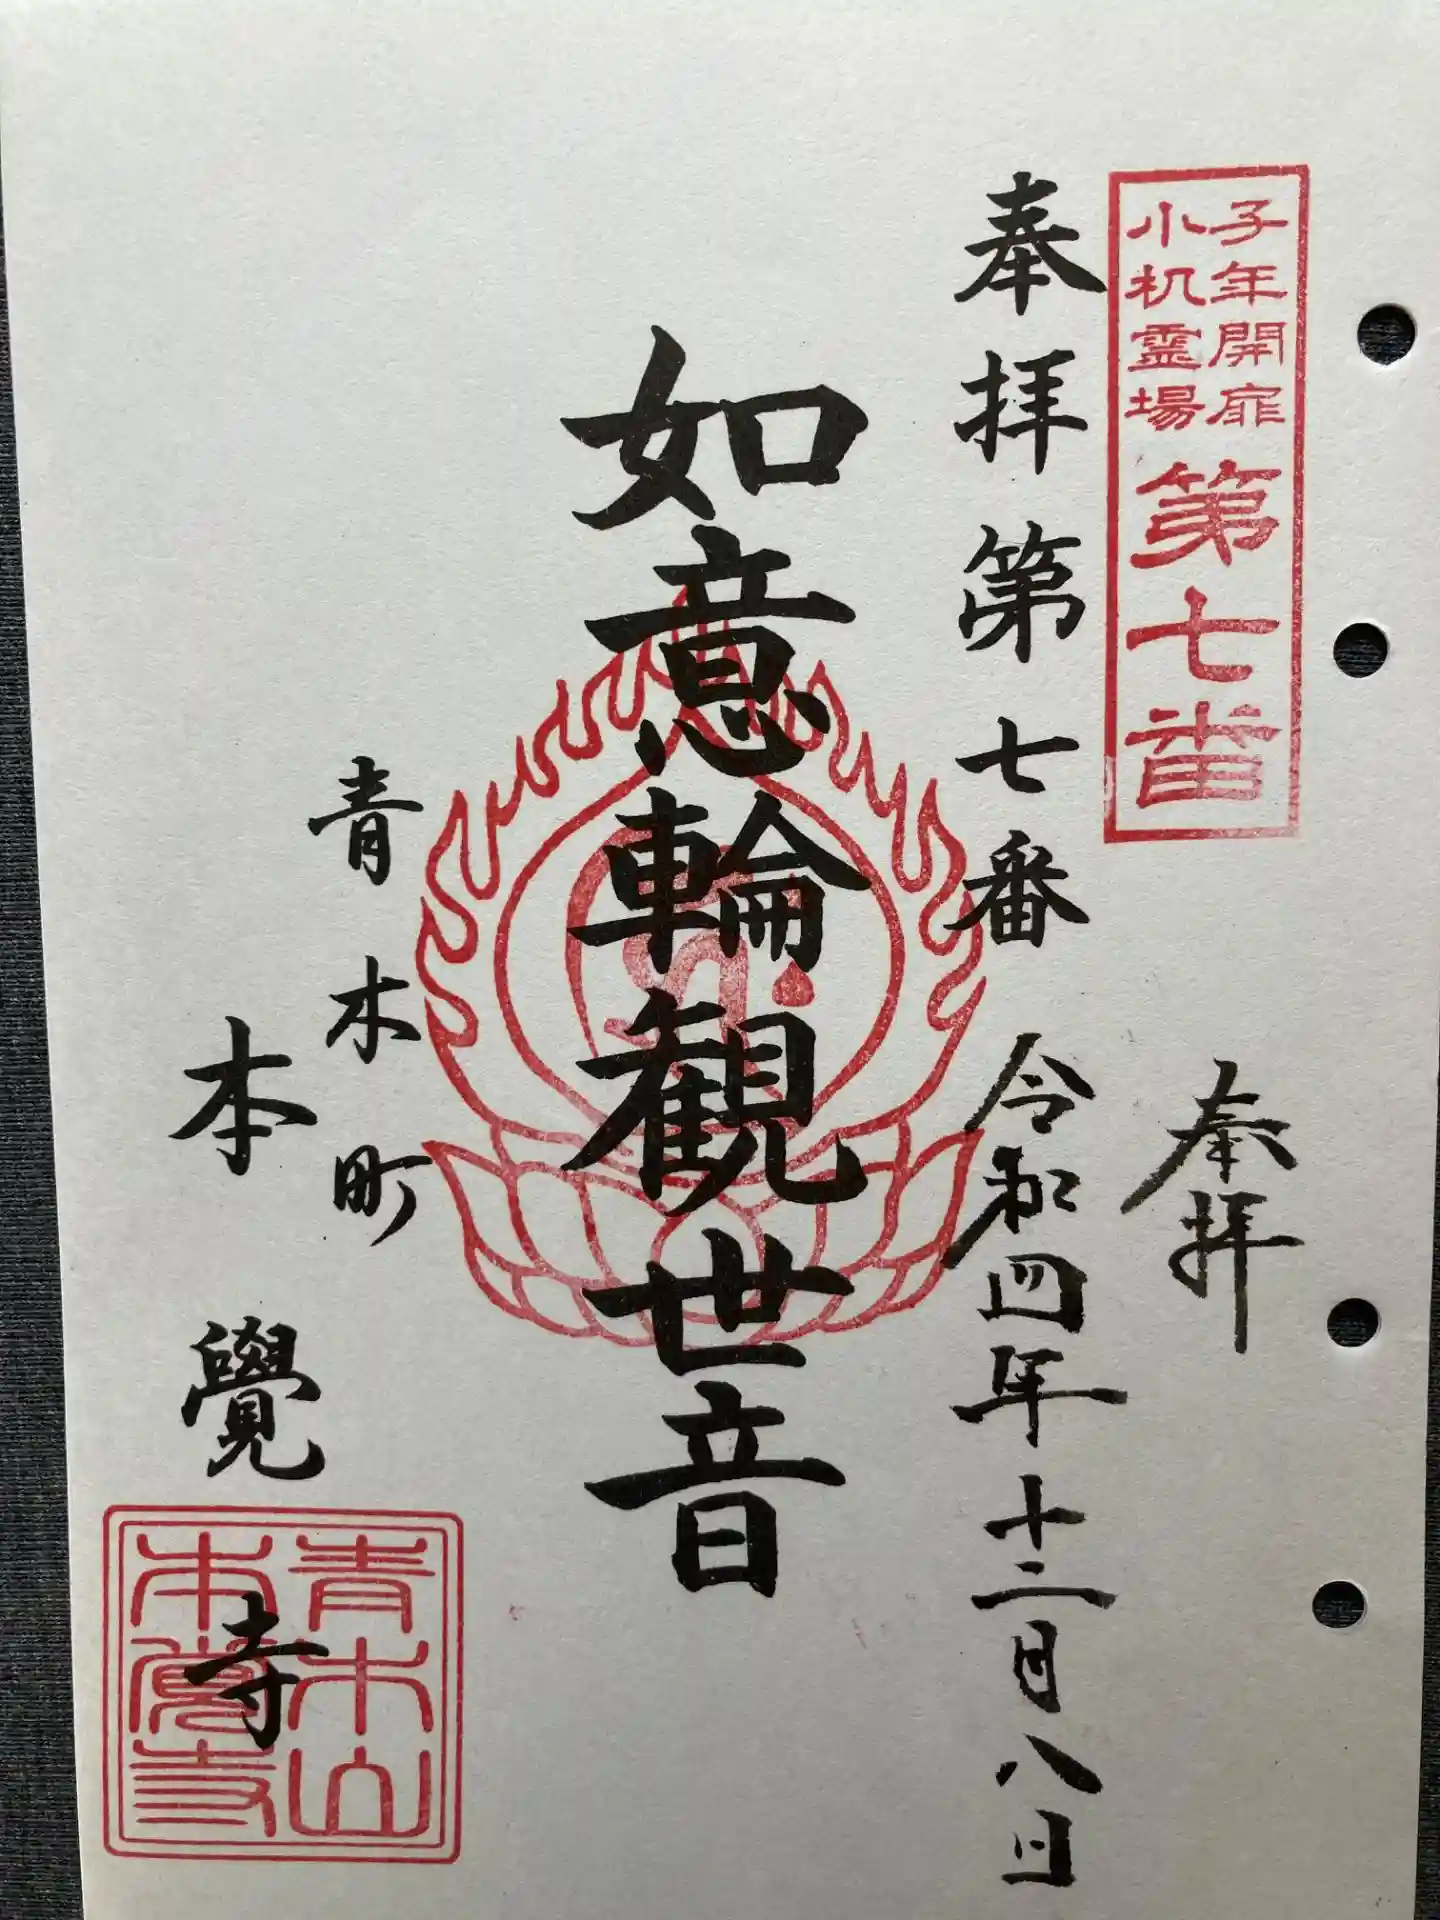 子年開扉
小机霊場
第七番
奉拝
奉拝第七番 令和四年十二月八日
如意輪観世音
青木町
本覺寺
青木山
本覺寺